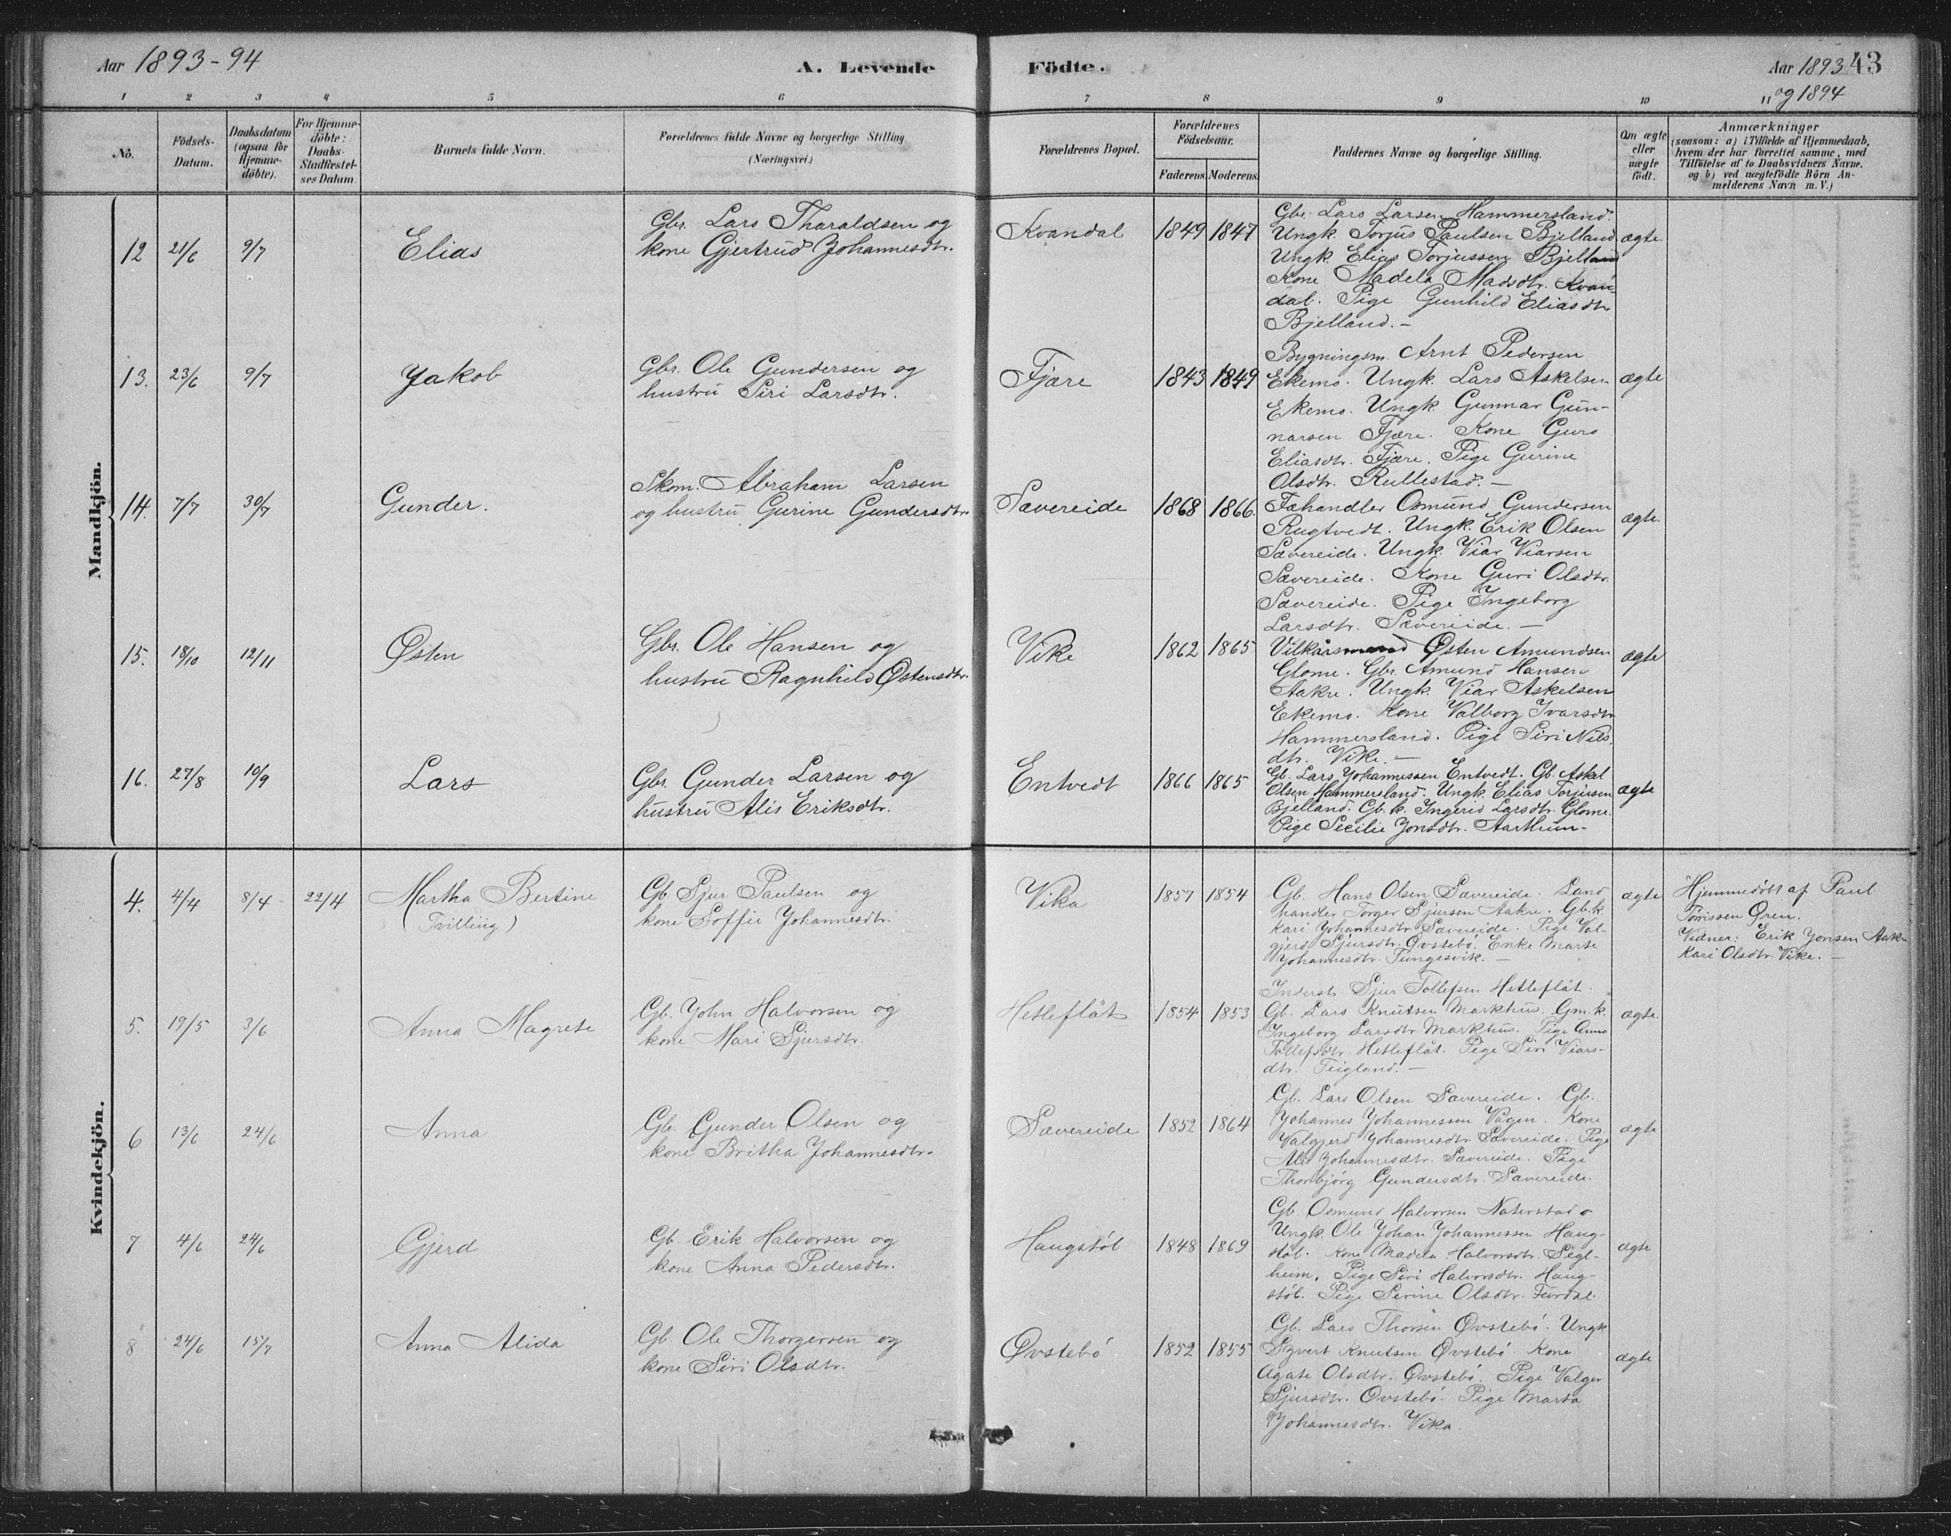 Aar 1893-94
A. Levende
Födte.
Aar 1893
og 1894
43
1 2 3 4 5 6 7 8 9 10 11
No.
Födsels-
Datum.
Daabsdatum
(ogsaa for
Hjemme-
döbte).
For Hjemme-
döbte:
Daabs-
Stadfæstel-
ses Datum.
Barnets fulde Navn.
Forældrenes fulde Navne og borgerlige Stilling
(Næringsvei.)
Forældrenes Bopæl.
Forældrenes
Födselsaar.
Faderens. Moderens.
Faddernes Navne og borgerlige Stilling.
Om ægte
eller
uægte
födt.
Anmærkninger
(saasom: a) i Tilfælde af Hjemmedaab,
hvem der har forrettet samme, med
Tilföielse af to Daabsvidners Navne,
og b) ved uægtefödte Börn An-
melderens Navn m. V.)
Mandkjön.
12 21/6 9/7 Elias
Gbr. Lars Tharaldsen og
kone Gjertrud Johannesdtr.
Kvandal 1849 1847
Gbr. Lars Larsen Hammersland.
Ungk Torjus Paulsen Bjelland
Ungk Elias Torjussen Bjelland
Kone Madela Madsdtr. Kvan-
dal. Pige Gunhild Eliasdtr
Bjelland.-
ægte
13. 23/6 9/7 Jakob
Gbr. Ole Gundersen og
hustru Siri Larsdtr.
Fjære 1843 1849
Bygningsm. Arnt Pedersen
Ekemo. Ungk. Lars Askelsen
Ekemo. Ungk. Gunnar Gun-
narsen Fjære. Kone Guro
Eliasdtr. Fjære. Pige Gurine
Olsdtr. Rullestad.-
ægte
14. 7/7 30/7 Gunder.
Skom. Abraham Larsen
og hustru Gurine Gundersdtr.
Sævereide 1868 1866.
Fæhandler Osmund Gundersen
Rugtvedt. Ungk. Erik Olsen
Sævereide. Ungk. Viar Viarsen
Sævereide. Kone Guri Olsdtr.
Sævereide. Pige Ingeborg
Larsdtr. Sævereide.-
ægte.
15. 18/10 12/11 Østen
Gbr. Ole Hansen og
hustru Ragnhild Østensdtr.
Vike 1862 1865
Vilkårsmand Østen Amundsen
Glome. Gbr. Amund Hansen
Aakre. Ungk. Viar Askelsen
Ekemo. Kone Valborg Ivarsdtr
Hammersland. Pige Siri Nils
dtr. Vike.-
ægte
16. 27/8 10/9 Lars
Gbr. Gunder Larsen og
hustru Alis Eriksdtr.
Entvedt 1866 1865
Gb. Lars Johannessen Entvedt. Gb. Askel
Olsen Hammersland. Ungk Elias Torjusen
Bjelland. Gb. k. Ingerid Larsdtr. Glome.
Pige Secilie Jonsdtr. Aarthun-
ægte
Kvindekjön.
4. 4/4 8/4 22/4 Martha Bertine
(Tvilling)
Gb Sjur Paulsen og
kone Soffie Johannesdtr.
Vika 1857 1854
Gb. Hans Olsen Sævereide. Land
handler Torger Sjursen Aakre. Gb.k
Kari Johannesdtr Sævereide. Pige Val-
gjerd Sjursdtr. Øvstebö. Enke Marte
Johannesdtr. Tungesvik.-
ægte
Hjemmedöbt af Paul
Törissen Ören.
Vidner: Erik Jonsen Aak-
Kari Olsdtr. Vike.-
5. 19/5 3/6 Anna Magrete
Gb. John Halvorsen og
kone Mari Sjursdtr.
Hetleflåt 1854 1853
Inderst Sjur Tollefsen Hetleflåt.
Gb. Lars Knutsen Markhus. Gm.k.
Ingeborg Larsdtr Markhus. Pige Anna
Tollefsdtr. Hetleflåt. Pige Siri Viars-
dtr. Teigland.-
ægte.
6 13/6 24/6 Anna
Gb. Gunder Olsen og
kone Britha Johannesdtr.
Sævereide 1852 1864
Gb. Lars Olsen Sævereide. Gb.
Johannes Johannessen Vågen. Kone
Valgjerd Johannesdtr Sævereide. Pige
Alis Johannesdtr. Sævereide. Pige
Thorbjörg Gundersdtr. Sævereide.
ægte
7 4/6 24/6 Gjerd
Gb. Erik Halvorsen og
kone Anna Pedersdtr.
Haugstöl 1848 1869
Gb. Osmund Halvorsen Naterstad
Ungk. Ole Johan Johannessen Haug-
stöl. Kone Madela Halvorsdtr. Sigl-
heim. Pige Siri Halvorsdtr. Haug-
stöl. Pige Serine Olsdtr. Furdal
ægte
8 24/6 15/7 Anna Alida
Gb. Ole Thorgersen og
kone Siri Olsdtr.
Øvstebö 1852 1855
Gb. Lars Thorsen Øvstebö. Ungk
Syvert Knutsen Øvstebö. Kone
Agate Olsdtr. Øvstebö. Pige Valger
Sjursdtr. Øvstebö. Pige Marta
Johannesdtr. Vika
ægte